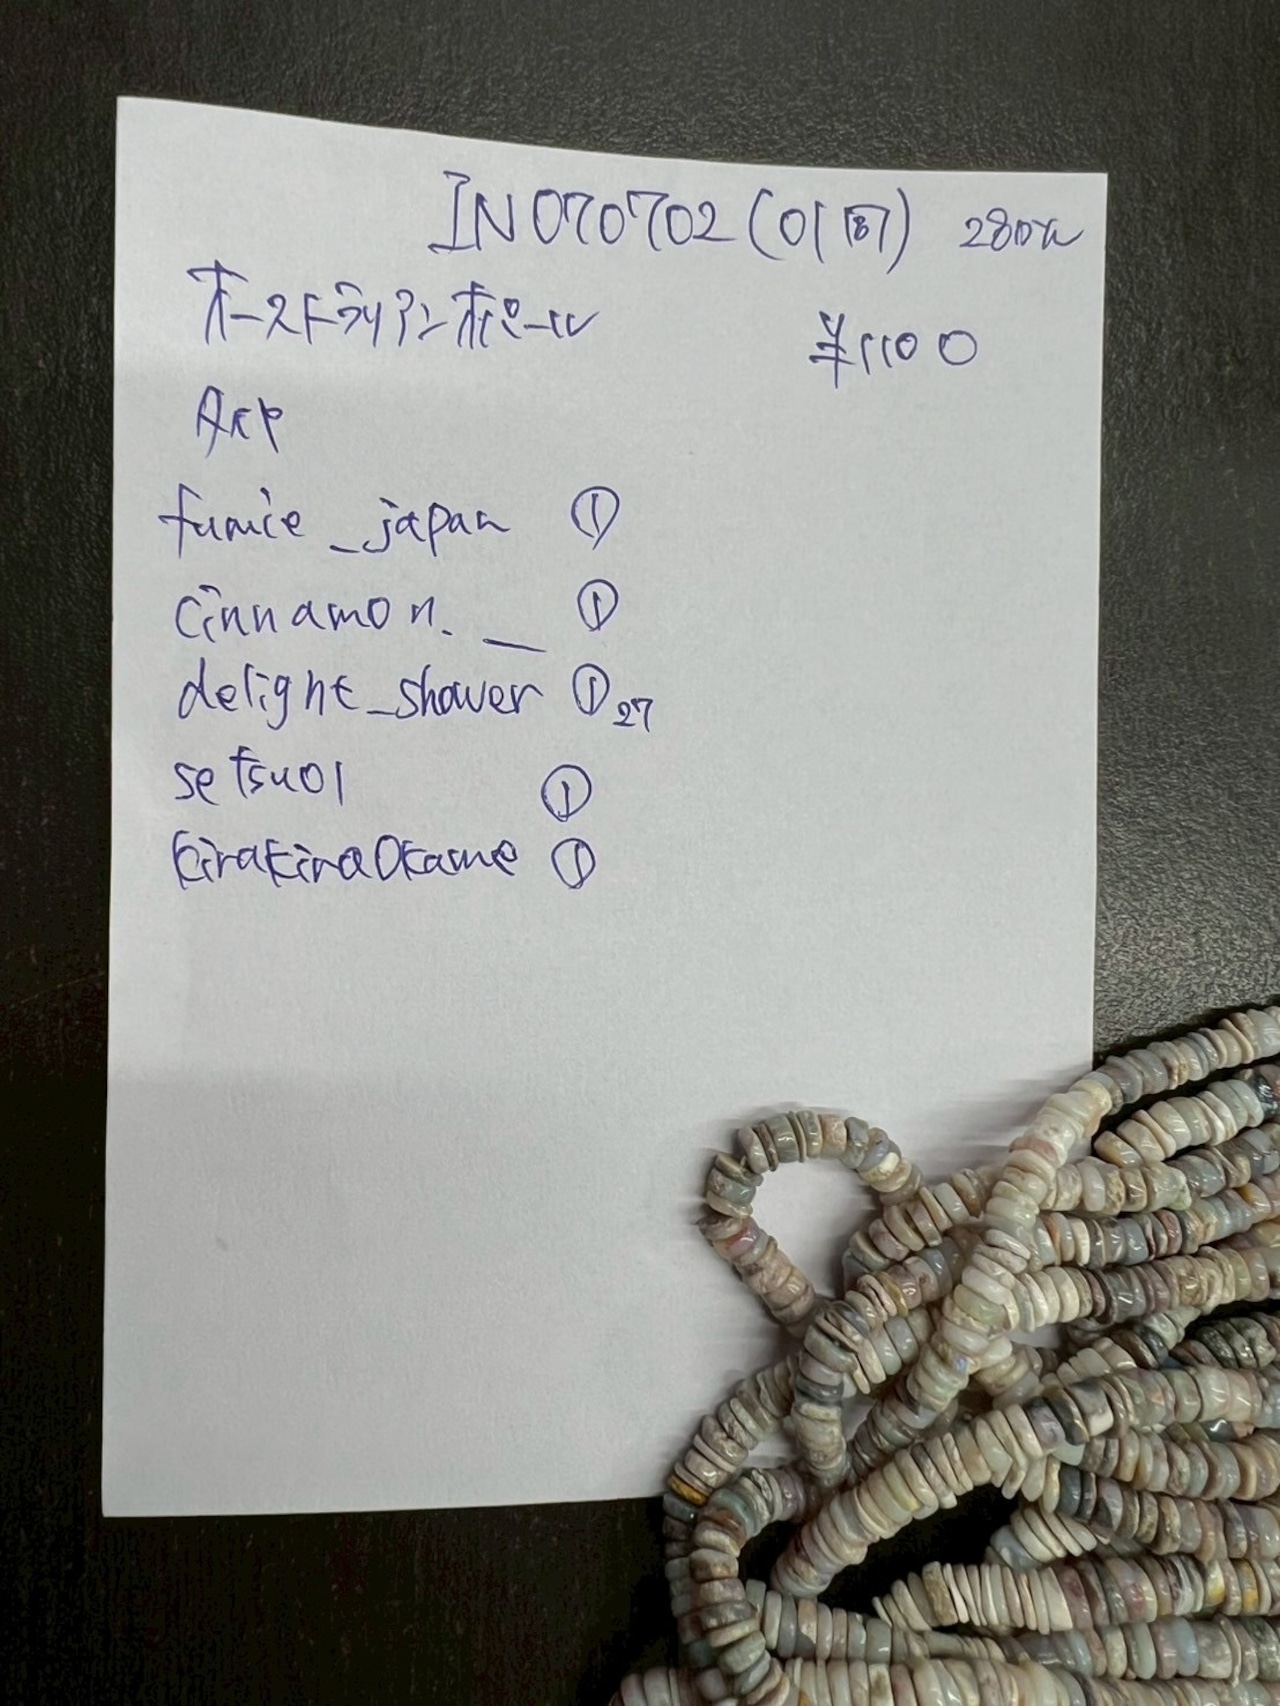 IN070702 (01 ) 280
オーストラリアンオパール ¥1100
fumie_japan ①
cinnamon._ ①
delight_shower ① 27
setsu01 ①
kirakiraokame ①